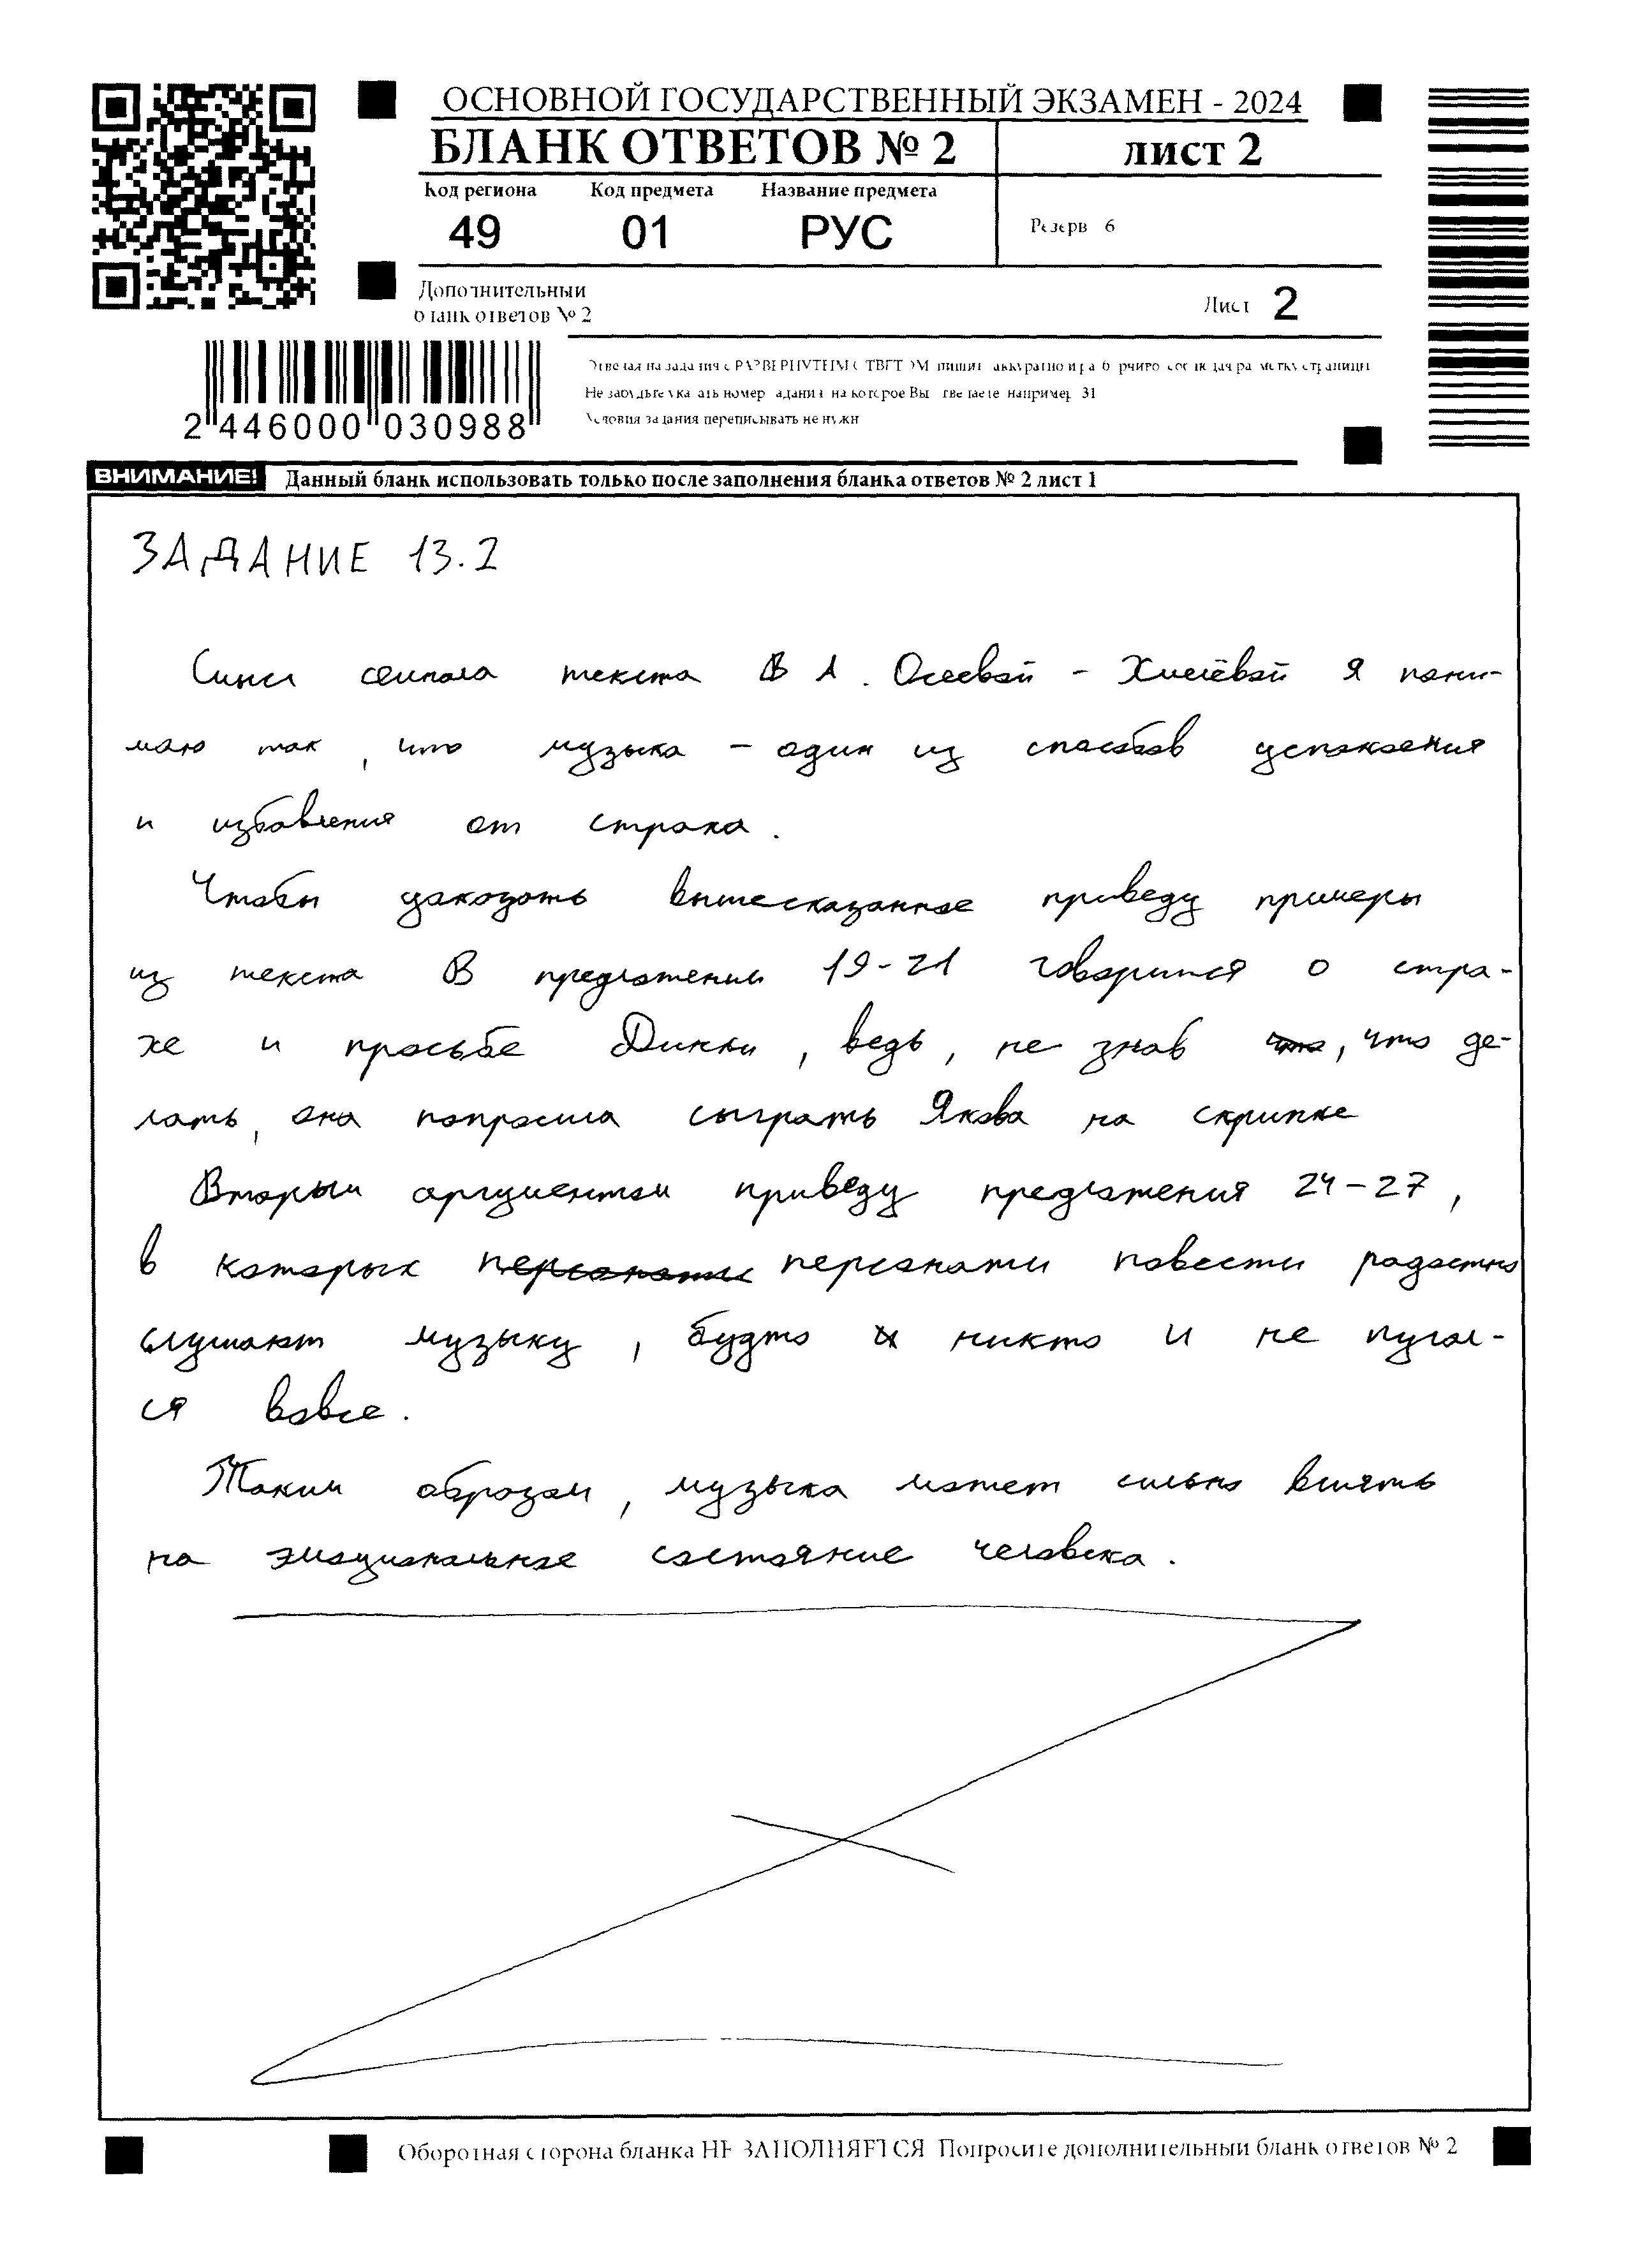 ОСНОВНОЙ ГОСУДАРСТВЕННЫЙ ЭКЗАМЕН - 2024
БЛАНК ОТВЕТОВ № 2
лист 2
Код региона Код предмета Название предмета
49 01 РУС
Резерв 6
Дополнительный
бланк ответов № 2
Лист 2
2 446000 030988
Отвечая на задания с РАЗВЕРНУТЫМ ОТВЕТОМ пишите аккуратно и разборчиво соблюдая разметку страницы
Не забудьте указать номер задания на которое Вы отвечаете например 31
Условия задания переписывать не нужно
ВНИМАНИЕ! Данный бланк использовать только после заполнения бланка ответов № 2 лист 1
ЗАДАНИЕ 13.2
Смысл финала текста В А. Осеевой - Хмелёвой я пони-
маю так, что музыка - один из способов успокоения
и избавления от страха.
Чтобы доказать вышесказанное приведу примеры
из текста В предложении 19-21 говорится о стра-
хе и просьбе Динки, ведь, не знав что, что де-
лать, она попросила сыграть Якова на скрипке
Вторым аргументом приведу предложения 24-27,
в которых персонажи персонажи повести радостно
слушают музыку, будто и никто и не пугал-
ся вовсе.
Таким образом, музыка может сильно влиять
на эмоциональное состояние человека.
Оборотная сторона бланка НЕ ЗАПОЛНЯЕТСЯ Попросите дополнительный бланк ответов № 2